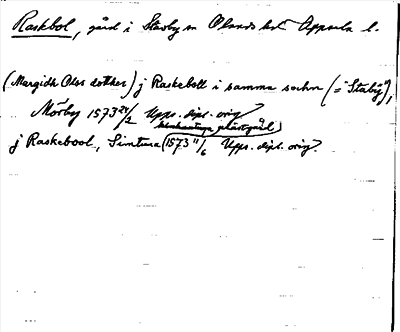 Raskbol, gård i Stavby sn Olands hd. Uppsala l.
(Margidh Olss dotther) j Raskeboll i samma sochn (= "Staby"),
Mörby 1573 24/2 Upps. dipl. orig
prästgård
j Raskebool, Simtuna (1573 11/6 Upps. dipl. orig.